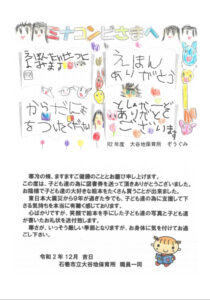 ミナコンピさまへ
えほん
ありがとう
からだに
R2 年度　大谷地保育所　ぞうぐみ
寒冷の候、ますますご健勝のこととお慶び申し上げます。
この度は、子ども達の為に図書券を送って頂きありがとうございました。
お陰様で子ども達の大好きな絵本をたくさん買うことが出来ました。
東日本大震災から9年が過ぎた今でも、子ども達の為に支援して下さる気持ちを本当に有難く感じております。
心ばかりですが、笑顔で絵本を手にした子ども達の写真と子ども達が書いたお礼状を送付致します。
寒さが、いっそう厳しい季節となりますが、お身体に気を付けてお過ごし下さい。
令和2年12月　吉日
石巻市立大谷地保育所　職員一同